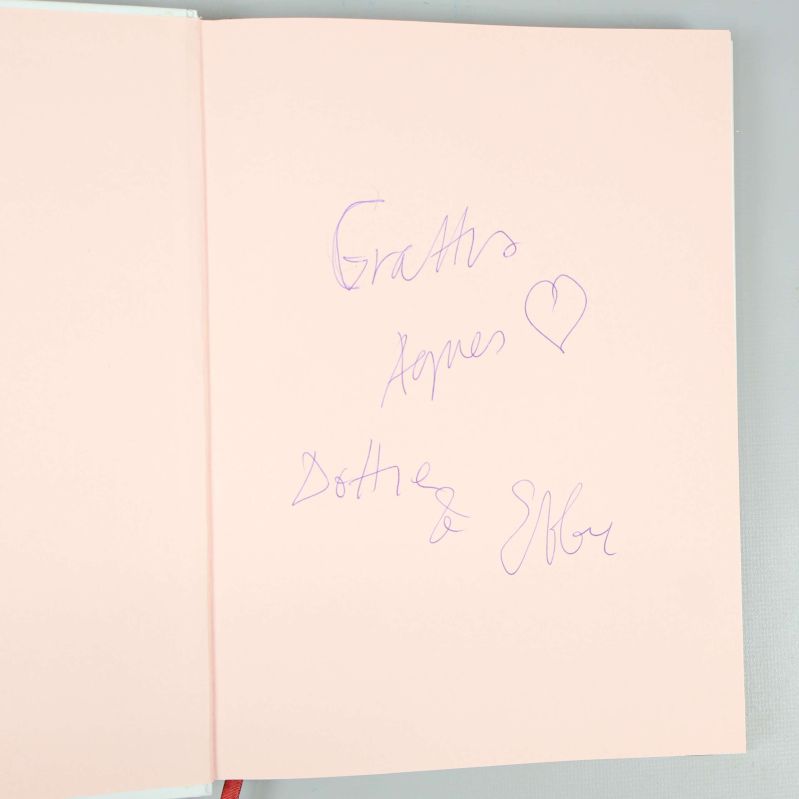 Grattis
Agnes
Dottie
&
Ebbe